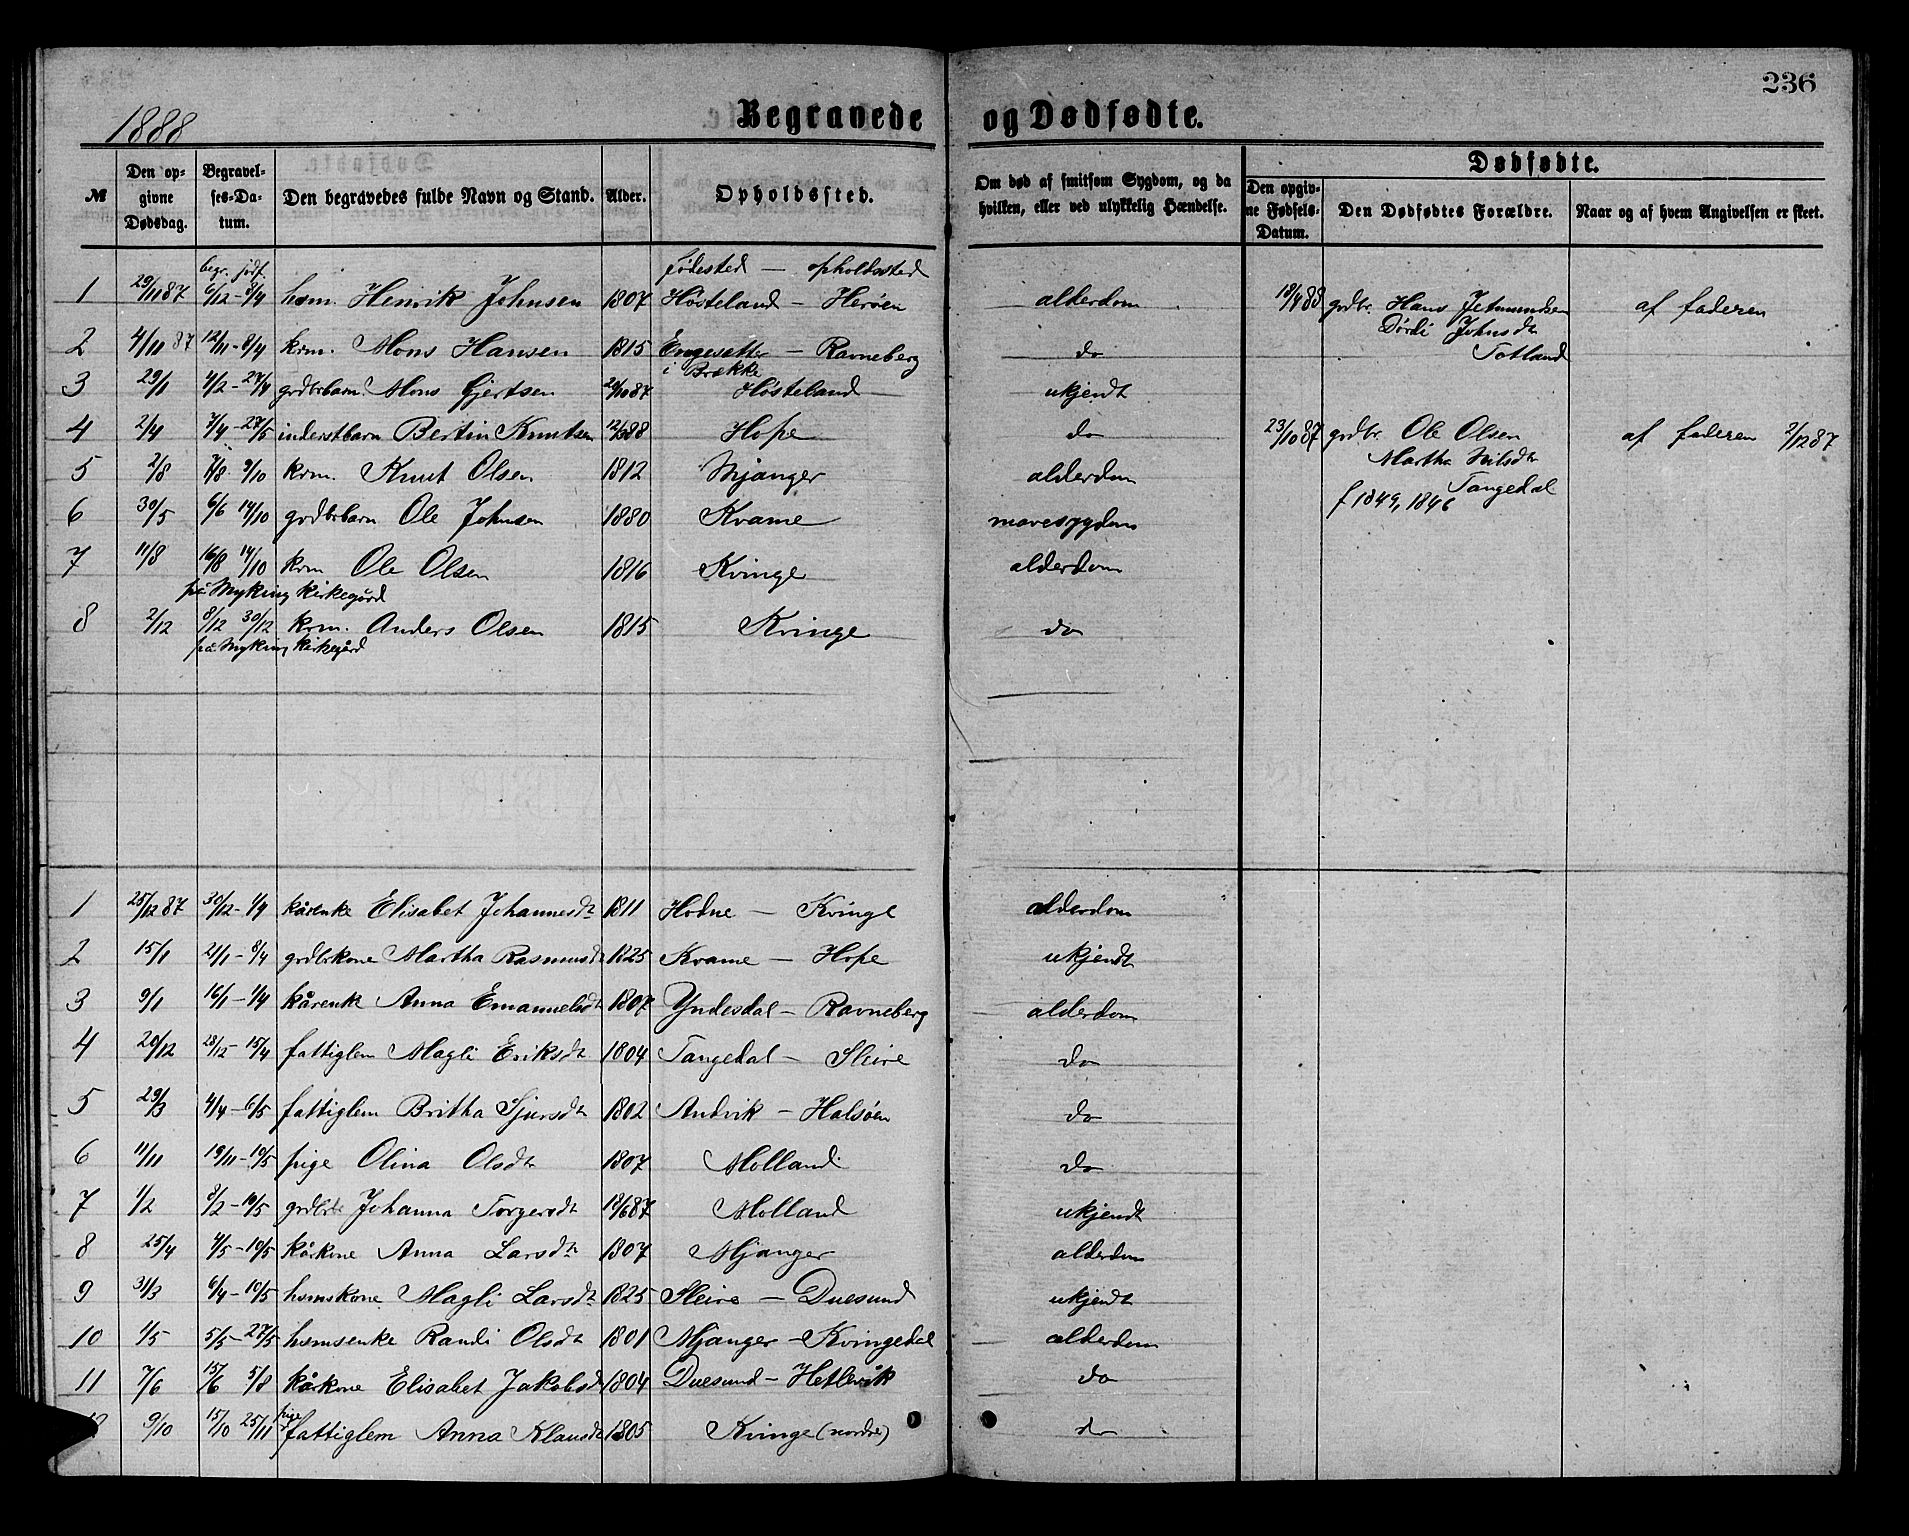 236
1888 Begravede og Dødfødte.
№ Den opgivne Dødsdag. Begravelses-Datum. Den begravedes fulde Navn og Stand. Alder. Opholdssted. Om død af smitsom Sygdom, og da hvilken, eller ved ulykkelig Hændelse. Dødfødte.
Den opgivne Fødsels-Datum. Den Dødfødtes Forældre. Naar og af hvem Angivelsen er skeet.
begr. jodf. Fødested — opholdssted
1 29/11 87 6/12 - 8/4 hsm. Henrik Johnsen 1807 Høsteland — Herøen alderdom 18/4 88 grdbr. Hans Jetmundsen af faderen
Johnsdt
2 4/11 87 12/11 - 8/4 krm. Mons Hansen 1815 Engesætter — Ravneberg do Totland
i Brække
3 29/1 4/2 - 27/4 grdbrbarn Mons Gjertsen 20/10 87 Høsteland ukjendt
4 2/4 7/4 - 27/5 inderstbarn Bertin Knutsen 88 Hope do 23/10 87 grdbr. Ole Olsen af faderen 2/12 87
Martha Nilsdt
5 2/8 7/8 9/10 krm. Knut Olsen 1812 Mjanger alderdom Tangedal
f 1849, 1846
6 30/5 6/6 14/10 grdbrbarn Ole Johnsen 1880 Kvame mavesygdom
7 11/8 16/8 14/10 krm Ole Olsen 1816 Kvinge alderdom
på Myking kirkegård
8 2/12 8/12 30/12 krm. Anders Olsen 1815 Kvinge do
på Myking kirkegård
1 25/12 87 30/12 - 1/4 kårenke Elisabet Johannesdt 1811 Hodne — Kvinge alderdom
2 15/1 21/1 - 8/4 grdbrkone Martha Rasmusdt 1825 Kvame — Hope ukjendt
3 9/1 16/1 - 1/4 kårenk Anna Emanuelsdt 1807 Yndesdal — Ravneberg alderdom
4 20/12 28/12 - 15/4 fattiglem Magli Eriksdt 1804 Tangedal — Sleire do
5 29/3 4/4 - 6/5 fattiglem Britha Sjursdt 1802 Andvik — Halsøen do
6 11/11 19/11 - 10/5 pige Olina Olsdt 1807 Molland do
7 1/2 8/2 - 10/5 Johanna Torgersdt 18/6 87 Molland ukjendt
8 25/4 4/5 - 10/5 kårkone Anna Larsdt 1807 Mjanger alderdom
9 31/3 6/4 - 10/5 hsmskone Magli Larsdt 1825 Sleire — Duesund ukjendt
10 1/5 5/5 - 27/5 hsmsenke Randi Olsdt 1801 Mjanger — Kvingedal alderdom
11 7/6 15/6 5/8 kårkone Elisabet Jakobsdt 1804 Duesund — Hetlevik do
pige
9/10 15/10 25/11 fattiglem Anna Klausdt 1805 Kvinge (nordre) do